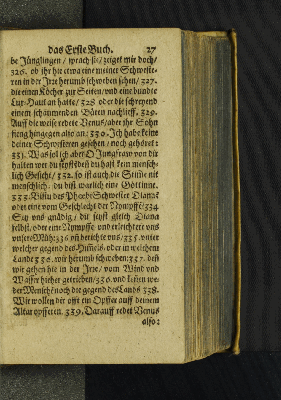 das Erste Buch. 27
be Jünglingen / sprach sie / zeiget mir doch /
326. ob ihr hie etwa eine meiner Schweste-
ren in der Irre herumb schweben sehen / 327.
die einen Köcher zur Seiten / und eine bundte
Lux-Haut an hatte / 328 oder die schreyend
einem schaumenden Bären nachlieff. 329.
Auff die weise redete Venus / aber ihr Sohn
fieng hingegen also an: 330. Ich habe keine
deiner Schwesteren gesehen / noch gehöret:
331. Was sol ich aber O Jungfraw von dir
halten
du hast kein mensch-
lich Gesicht / 332. so ist auch die Stimme nit
menschlich. du bist warlich eine Göttinne.
333. Bistu des Phœbi Schwester Diana?
oder eine vom Geschlecht der Nymphen? 334.
Sey uns gnädig / du seyst gleich Diana
selbst / oder eine Nymphe und erleichtere uns
unsere Müh: 336 und berichte uns / 335. unter
welcher gegend des Himels / oder in welchem
Lande 336. wir herumb schweben: 337. deñ
wir gehen hie in der Irre / vom Wind und
Wasser hieher getrieben /
und kennen we-
der Menschē noch die gegend des Lands 338.
Wir wollen dir offt ein Opffer auff deinem
Altar opfferen. 339. Darauff redet Venus
also: